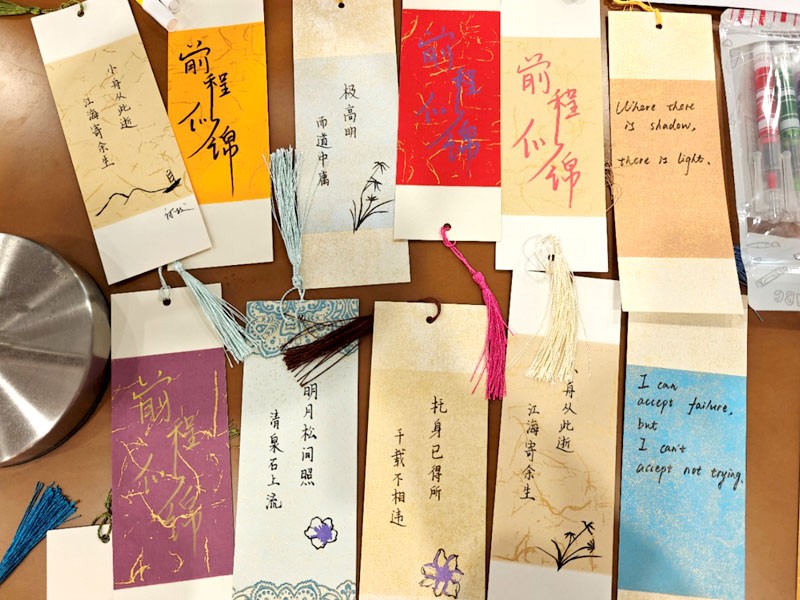 小舟从此逝
江海寄余生
前程似锦
极高明
而道中庸
前程似锦
前程似锦
Where there
is shadow,
there is light.
前程似锦
明月松间照
清泉石上流
托身已得所
千载不相违
小舟从此逝
江海寄余生
I can
accept failure,
but
I can't
accept not trying.